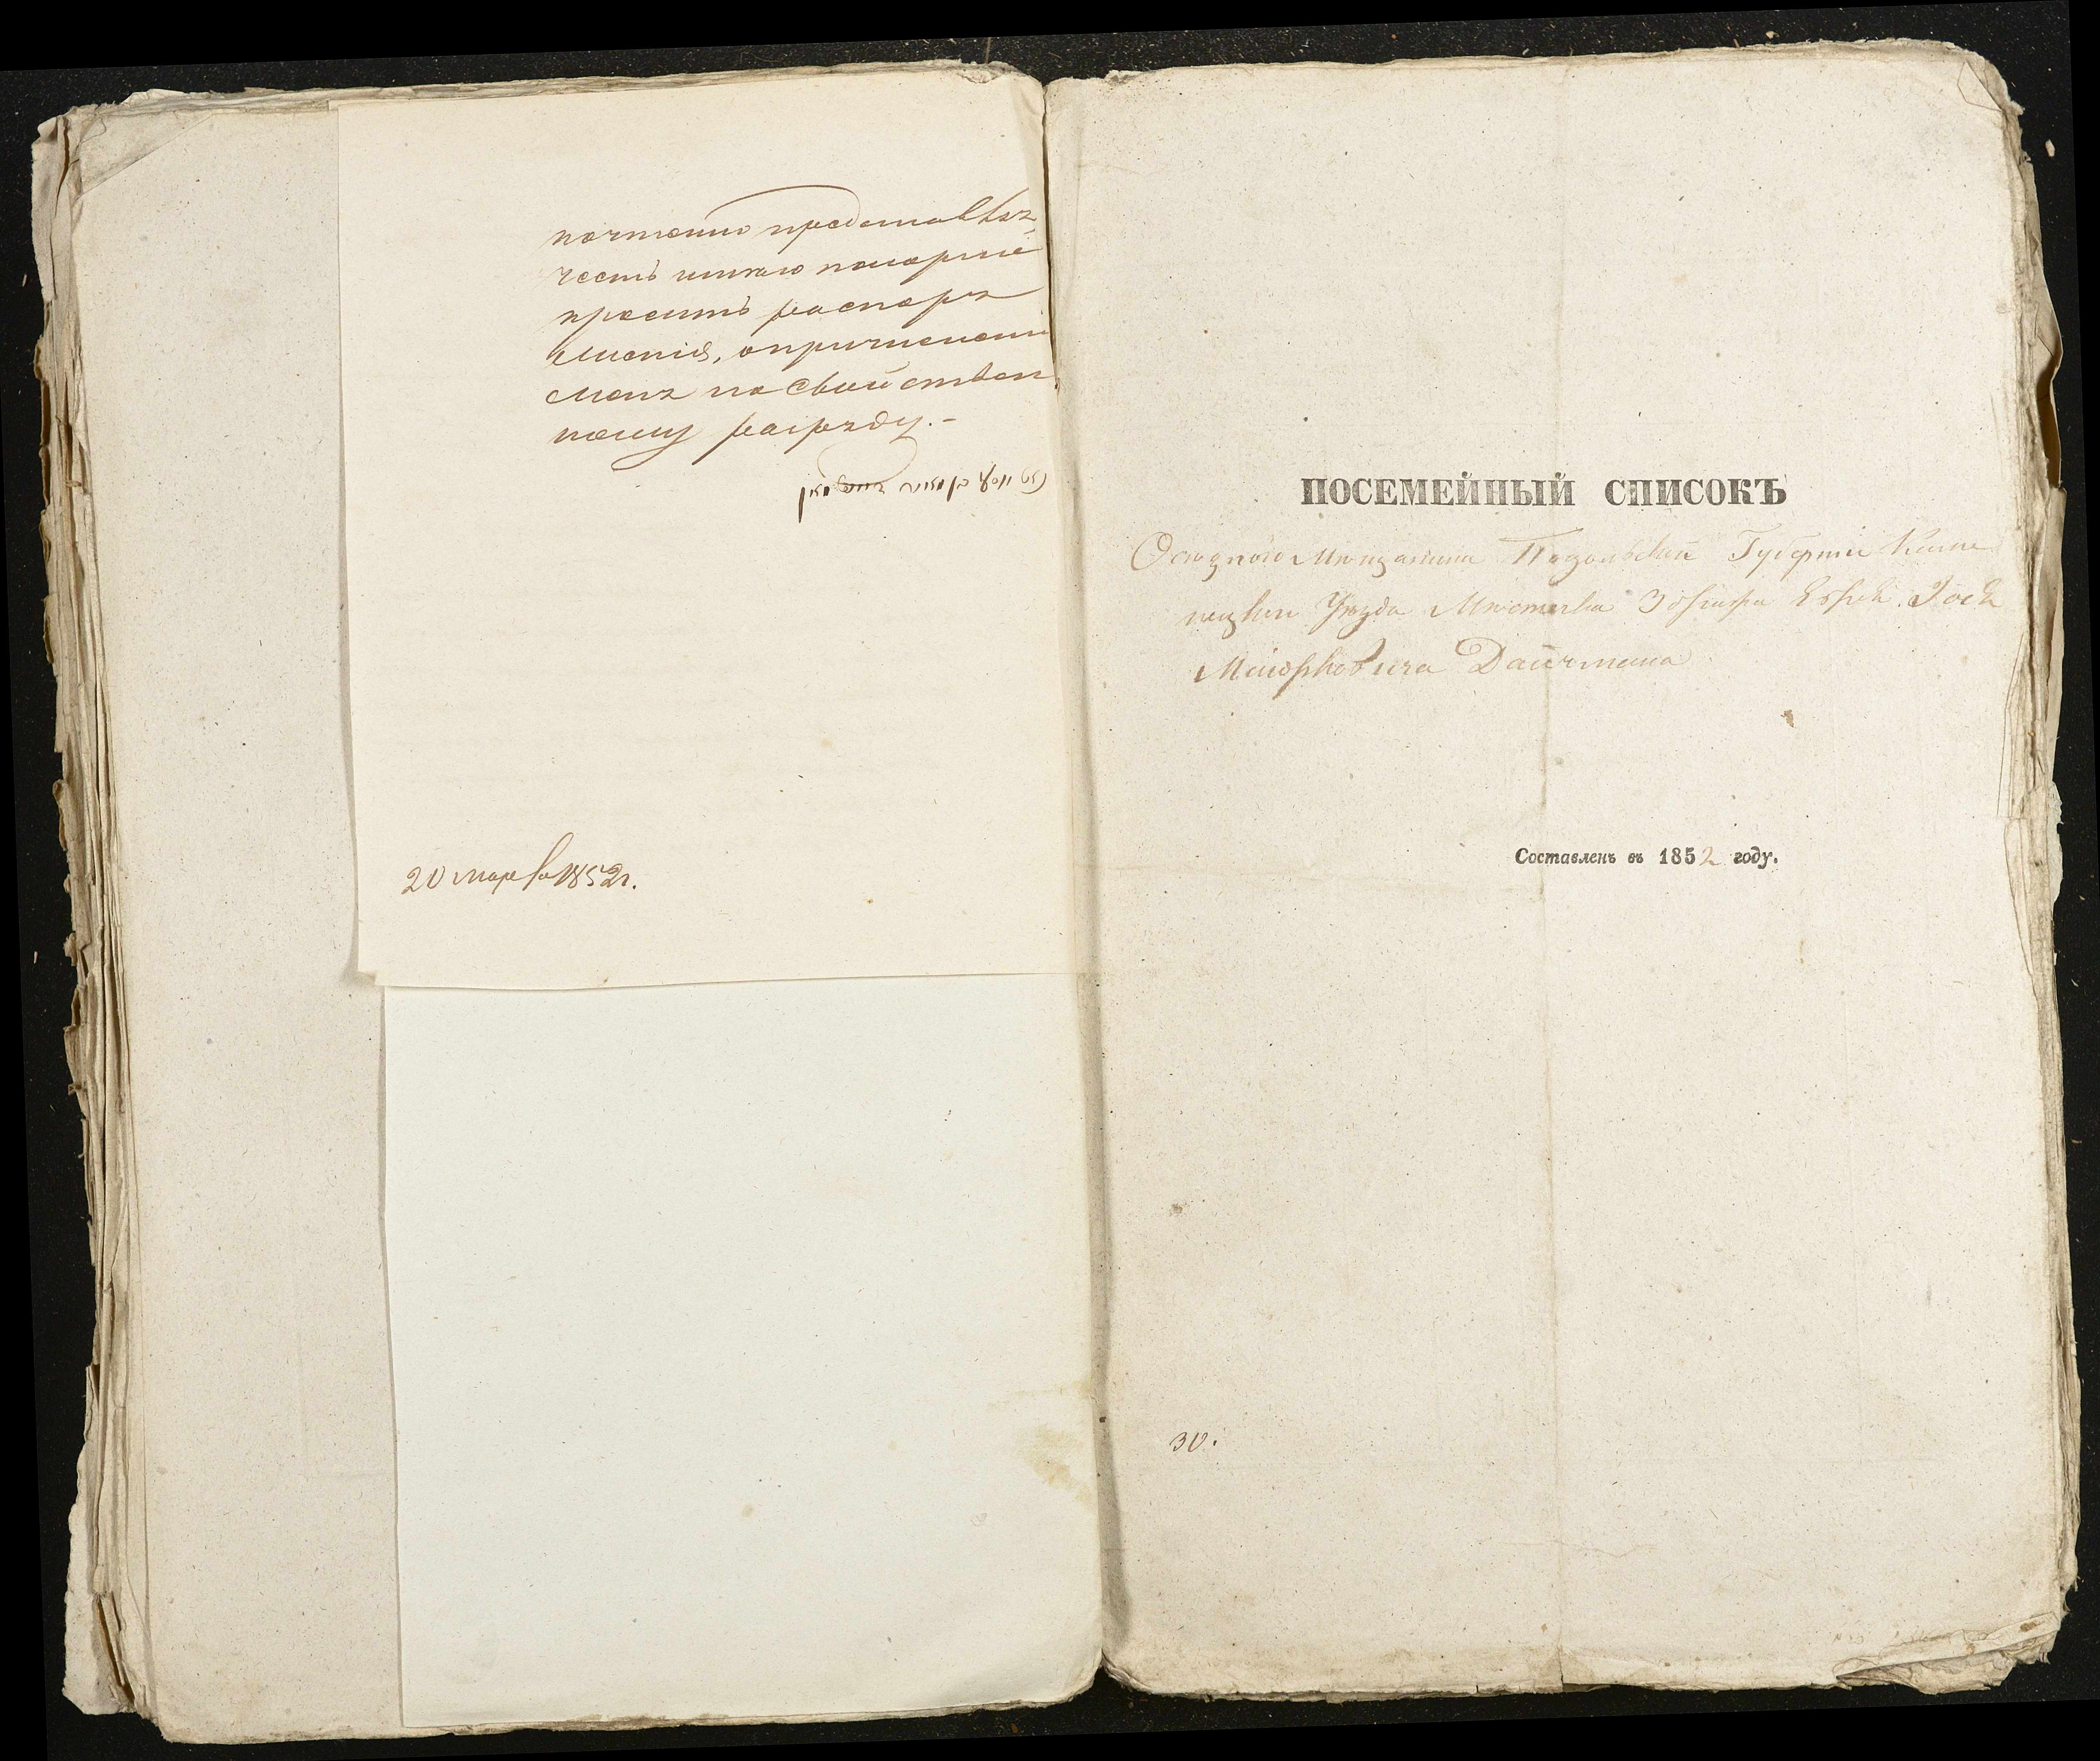 почтенію представляя
честь имѣю покорнѣ
просить распоря
женія, о причисленіи
меня по свойствен
ному разряду.-
20 марта 1852 г.
ПОСЕМЕЙНЫЙ СПИСОКЪ
Осѣдлаго Мѣщанина Подольской Губерніи Каме
нецкаго Уѣзда Мѣстечка Збрижа Еврея Иося
Маіорковича Дайчмана
Составленъ въ 1852 году.
30.